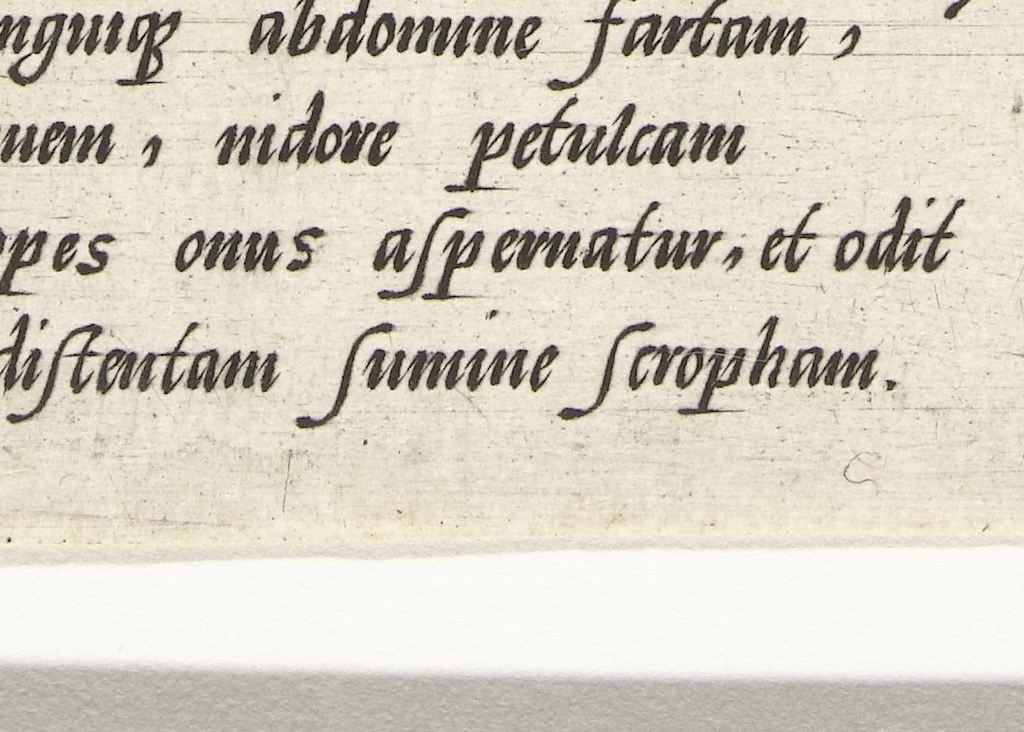 abdomine fartam,
nidore petulcam
onus aſpernatur, et odit
diſtentam ſumine ſcropham.